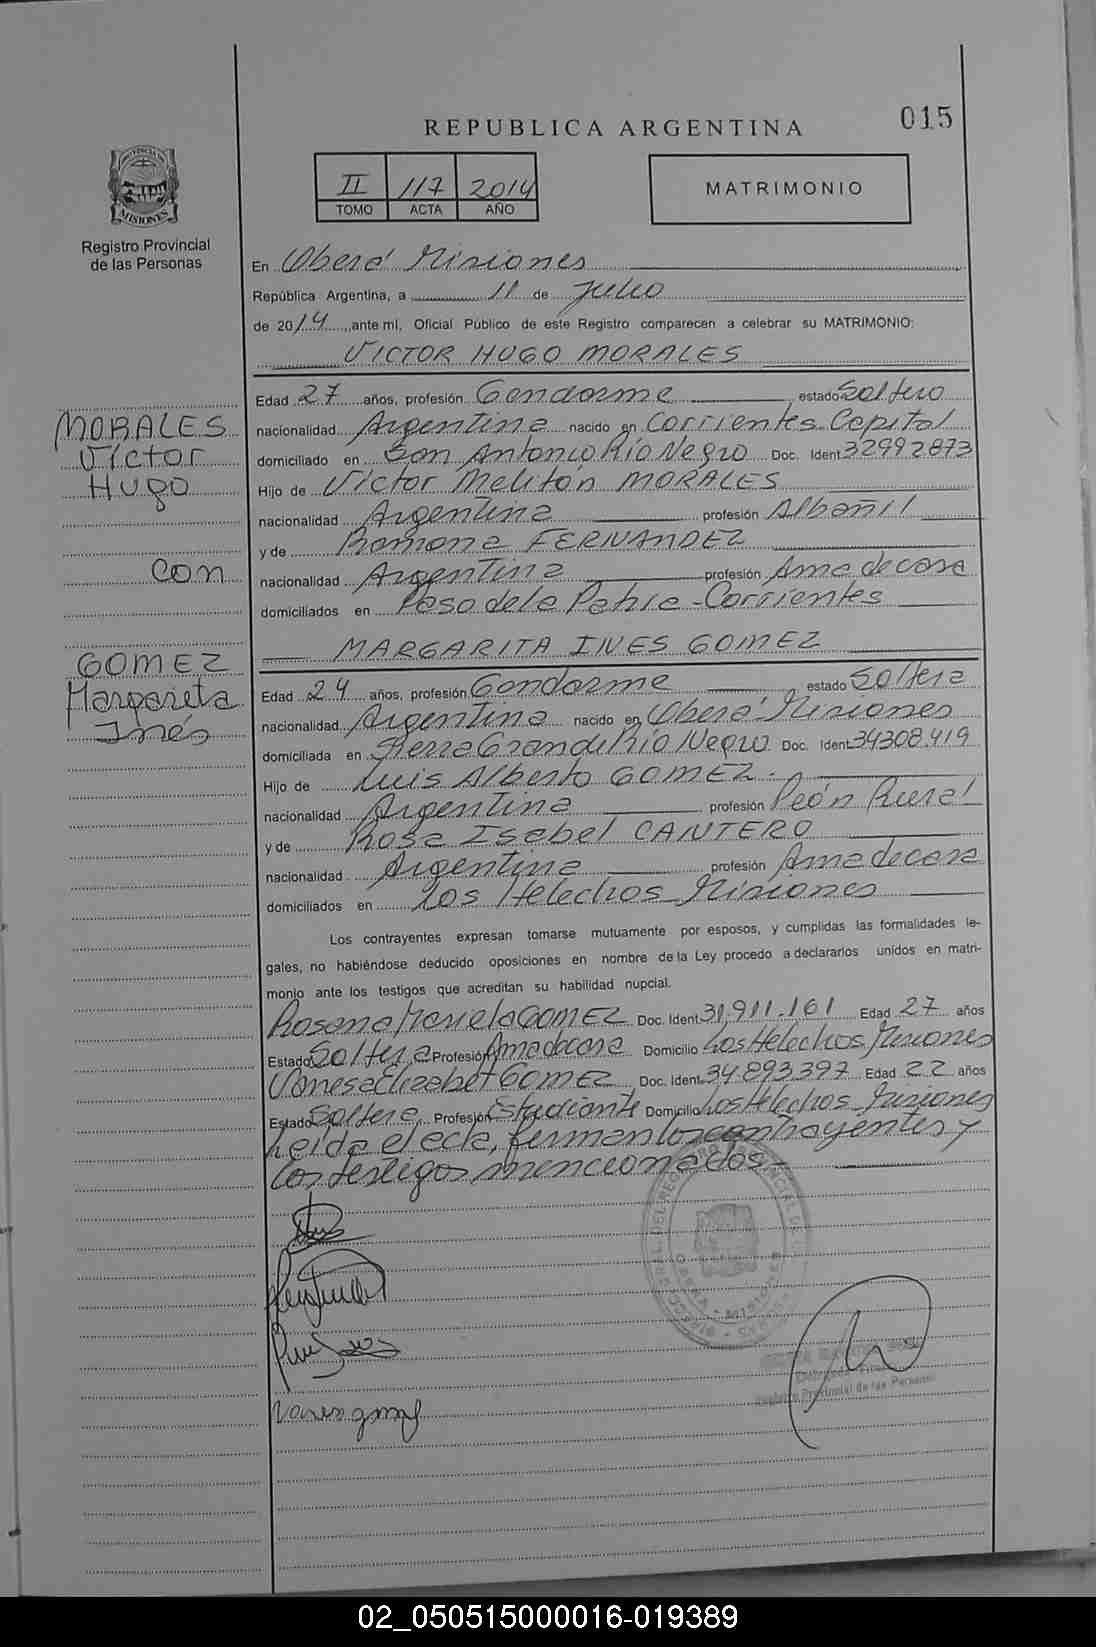 015
REPUBLICA ARGENTINA
II 117 2014
TOMO ACTA AÑO
MATRIMONIO
PROVINCIA DE
MISIONES
Registro Provincial
de las Personas
En Oberá Misiones
República Argentina, a 11 de Julio
de 2014, ante mí, Oficial Público de este Registro comparecen a celebrar su MATRIMONIO:
VICTOR HUGO MORALES
Edad 27 años, profesión Gendarme estado Soltero
nacionalidad Argentina nacido en Corrientes Capital
domiciliado en San Antonio Río Negro Doc. Ident 32992873
Hijo de Victor Melitón MORALES
nacionalidad Argentina profesión Albañil
y de Ramona FERNANDEZ
nacionalidad Argentina profesión Ama de casa
domiciliados en Paso de la Patria - Corrientes
MORALES
Víctor
Hugo
con
GOMEZ
Margarita
Inés
MARGARITA INES GOMEZ
Edad 24 años, profesión Gendarme estado Soltera
nacionalidad Argentina nacido en Oberá Misiones
domiciliada en Sierra Grande Río Negro Doc. Ident 34308.419
Hijo de Luis Alberto GOMEZ.
nacionalidad Argentina profesión Peón Rural
y de Rosa Isabel CANTERO
nacionalidad Argentina profesión Ama de casa
domiciliados en Los Helechos Misiones
Los contrayentes expresan tomarse mutuamente por esposos, y cumplidas las formalidades le-
gales, no habiéndose deducido oposiciones en nombre de la Ley procedo a declararlos unidos en matri-
monio ante los testigos que acreditan su habilidad nupcial.
Rosana Mariela GOMEZ Doc. Ident 31.911.161 Edad 27 años
Estado Soltera Profesión Ama de casa Domicilio Los Helechos Misiones
Vanesa Elizabet GOMEZ Doc. Ident 34.893.397 Edad 22 años
Estado Soltera Profesión Estudiante Domicilio Los Helechos Misiones
Leida el acta, firman los contrayentes y
los testigos mencionados
Registro Provincial de las Personas
02_050515000016-019389